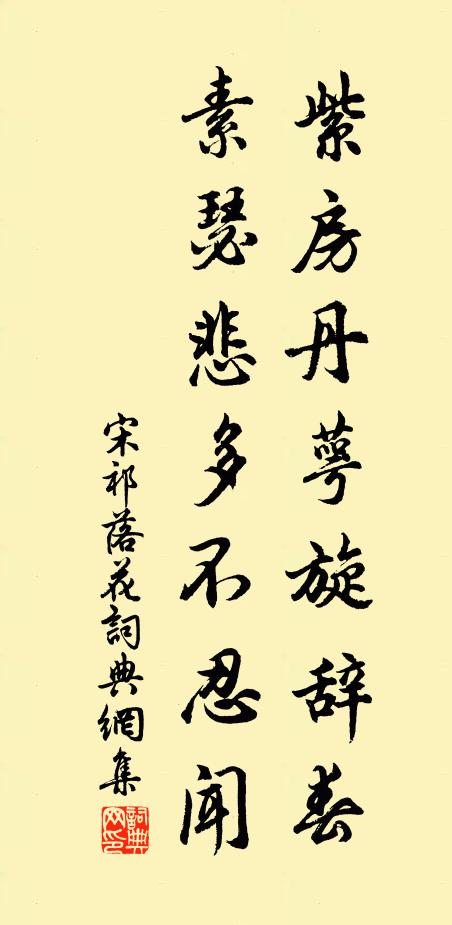 紫房丹萼旋辞春
素瑟悲多不忍闻
宋祁落花詞典網集
詞典网印